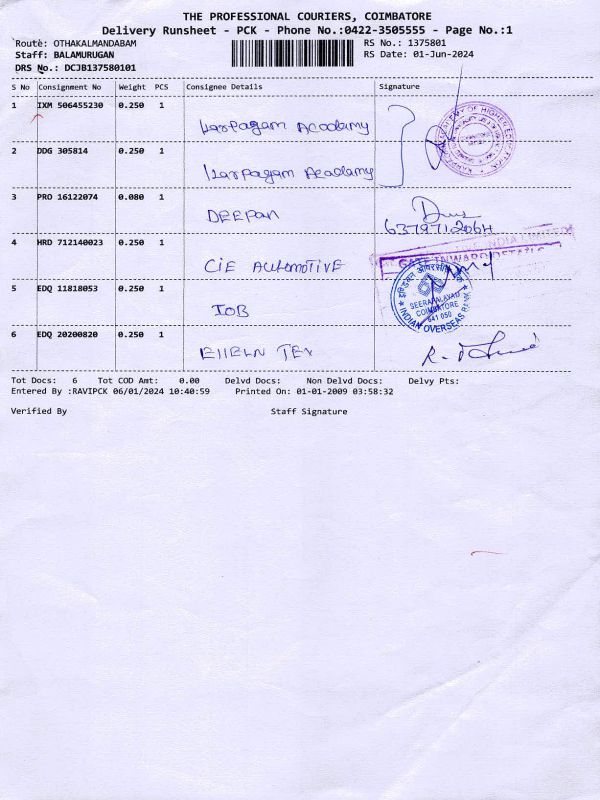 THE PROFESSIONAL COURIERS, COIMBATORE
Delivery Runsheet - PCK - Phone No.:0422-3505555 - Page No.:1
Route: OTHAKALMANDABAM RS No.: 1375801
Staff: BALAMURUGAN RS Date: 01-Jun-2024
DRS No.: DCJB137580101
S No Consignment No Weight PCS Consignee Details Signature
1 IXM 506455230 0.250 1 Karpagam Acadamy
2 DDG 305814 0.250 1 Karpagam Acadamy
3 PRO 16122074 0.080 1 DEEPAN
6379712064
4 HRD 712140023 0.250 1 CIE AUTOMOTIVE
GATE INWARD DETAILS
5 EDQ 11818053 0.250 1 IOB
SEERAPALAYAM
COIMBATORE
641 050
INDIAN OVERSEAS BANK
6 EDQ 20200820 0.250 1
Tot Docs: 6 Tot COD Amt: 0.00 Delvd Docs: Non Delvd Docs: Delvy Pts:
Entered By :RAVIPCK 06/01/2024 10:40:59 Printed On: 01-01-2009 03:58:32
Verified By Staff Signature